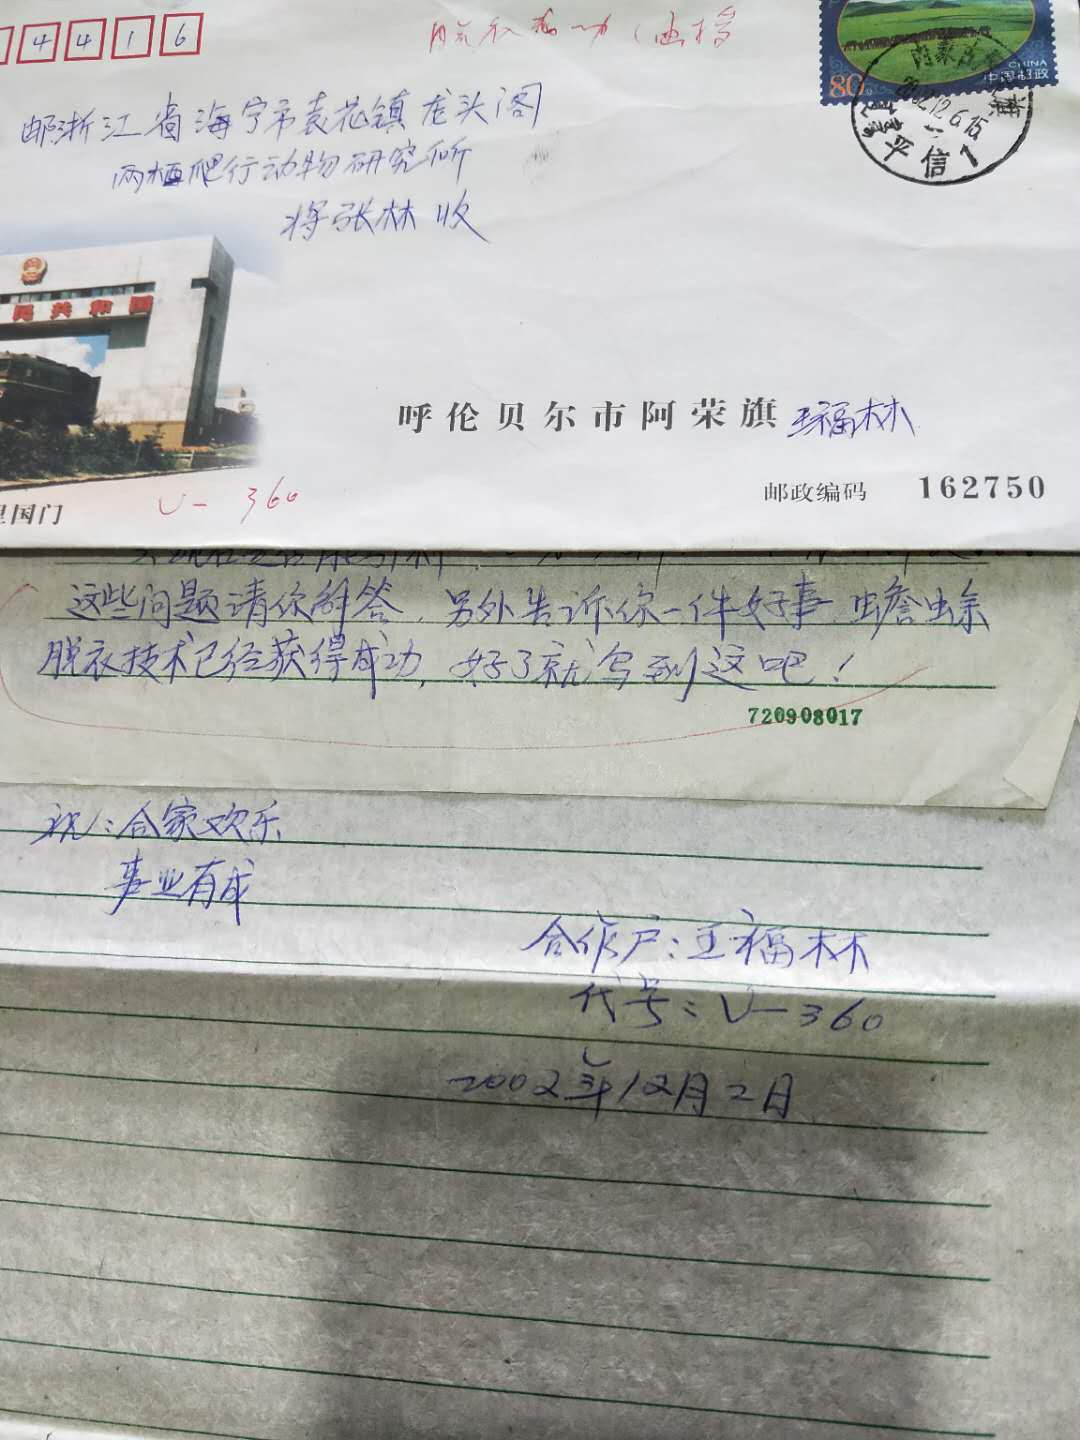 4416
脱衣成功(画掉
邮浙江省海宁市袁花镇龙头阁
两栖爬行动物研究所
将张林收
80
CHINA
中国邮政
内蒙古
2002.12.6.15
平信1
民共和国
呼伦贝尔市阿荣旗 王福林
邮政编码 162750
里国门
V-360
这些问题请你解答,另外告诉你一件好事,蟾蜍
脱衣技术已经获得成功,好了就写到这吧!
720908017
祝:合家欢乐
事业有成
合作户:王福林
代号:V-360
2002年12月2日